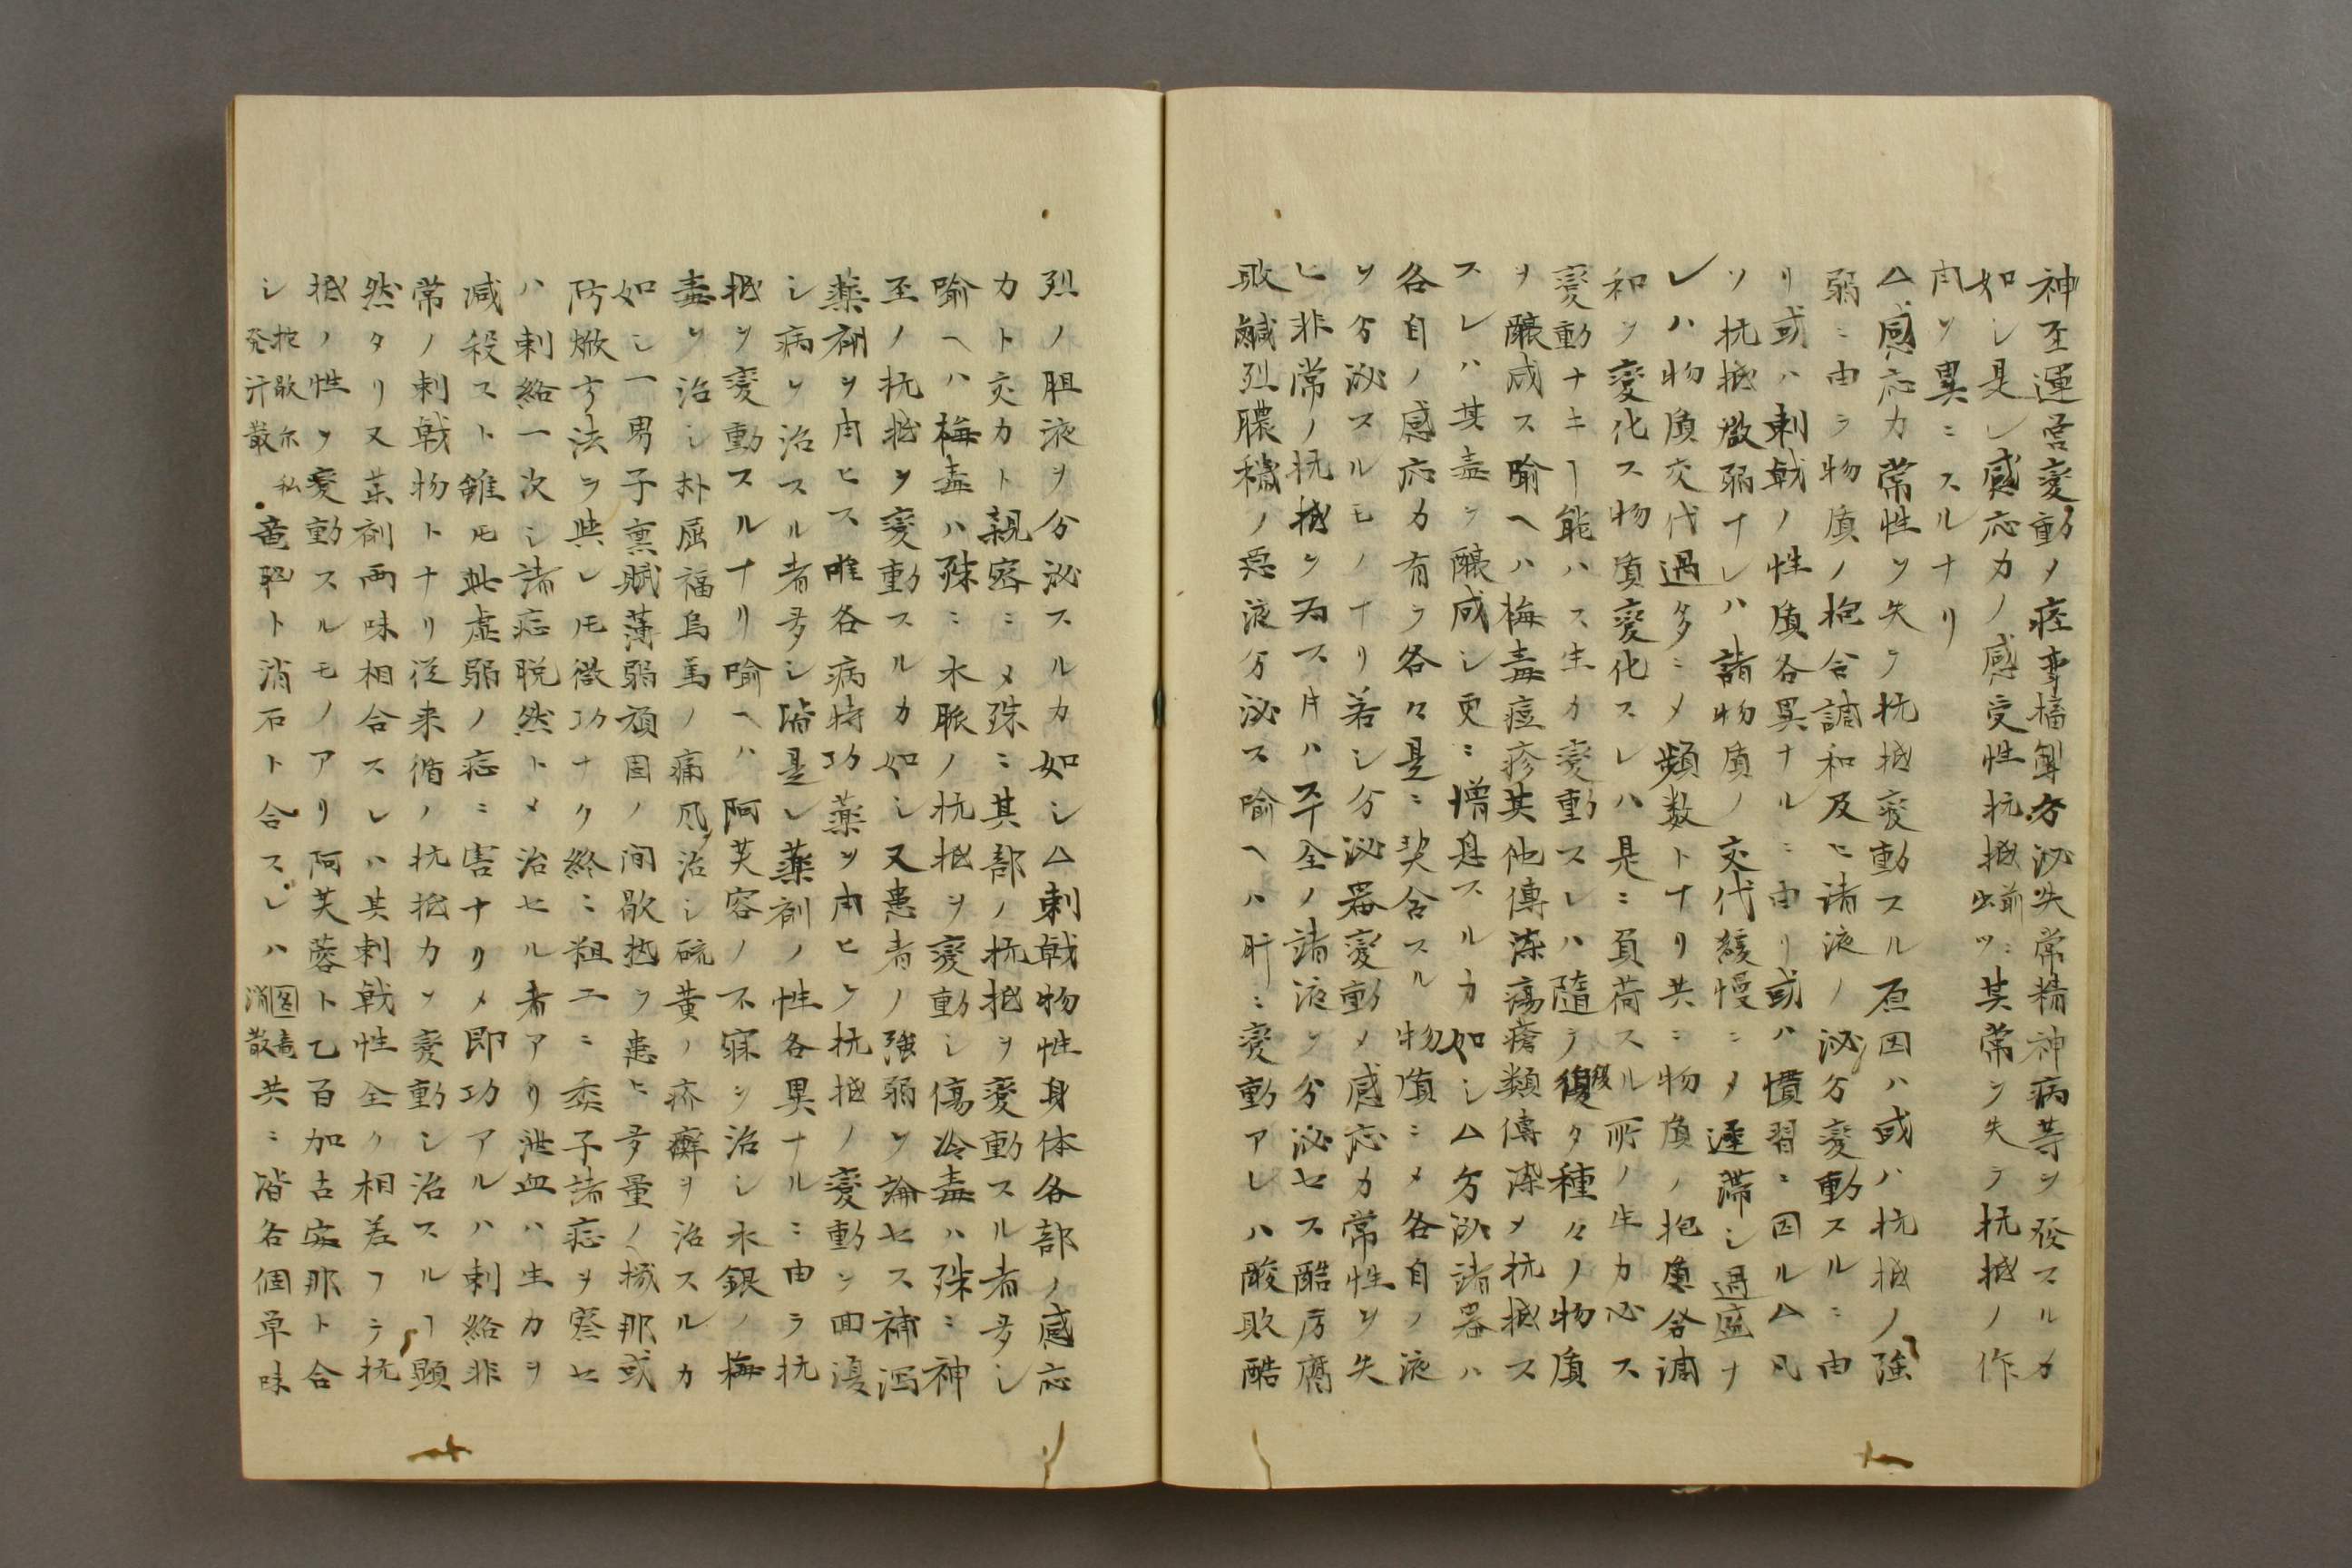 神至運営変動ノ痙攣搐掣分泌失常精神病等ヲ発スルカ
如シ是レ感応力ノ感受性抗抵前ニ出ツ其常ヲ失ラ抗抵ノ作
用ヲ異ニスルナリ
△感応力常性ヲ失ラ抗抵変動スル原因ハ或ハ抗抵ノ強
弱ニ由ラ物質ノ抱合調和及ヒ諸液ノ泌分変動スルニ由
リ或ハ刺戟ノ性質各異ナルニ由リ或ハ慣習ニ因ル△凡
ソ抗抵微弱ナレハ諸物質ノ交代緩慢ニメ遅滞シ過盛ナ
レハ物質交代過多ニメ頻数トナリ共ニ物質ノ抱質合調
和ヲ変化ス物質変化スレハ是ニ負荷スル所ノ生力必ス
変動ナキヿ能ハス生力変動スレハ随ラ復タ種々ノ物質
ヲ醸成ス喩ヘハ梅毒痘疹其他傳染瘍瘡類傳染メ抗抵ス
スレハ其毒ヲ醸成シ更ニ増息スルカ如シ△分泌諸器ハ
各自ノ感応力有ラ各々是ニ契合スル物質ニメ各自ノ液
ヲ分泌スルモノナリ若シ分泌器変動メ感応力常性ヲ失
ヒ非常ノ抗抵ヲ為ス片ハ平全ノ諸液ヲ分泌セス酷厉腐
敗鹹烈膿穢ノ悪液分泌ス喩ヘハ肝ニ変動アレハ酸敗酷
烈ノ胆液ヲ分泌スルカ如シ△刺戟物性身体各部ノ感応
カト交カト親密ニメ殊ニ其部ノ抗抵ヲ変動スル者多シ
喩ヘハ梅毒ハ殊ニ水脈ノ抗抵ヲ変動シ傷冷毒ハ殊ニ神
至ノ抗抵ヲ変動スルカ如シ又患者ノ強弱ヲ論セス補瀉
薬剤ヲ用ヒス唯各病特功薬ヲ用ヒラ抗抵ノ変動ヲ回復
シ病ヲ治スル者多シ皆是レ薬剤ノ性各異ナルニ由ラ抗
抵ヲ変動スルナリ喩ヘハ阿芙容ノ不寐ヲ治シ水銀ノ梅
毒ヲ治シ朴屈福烏篤ノ痛風治シ硫黄ノ疥癬ヲ治スルカ
如シ一男子稟賦薄弱頑固ノ間歇熱ヲ患ヒ多量ノ機那或
防焮方法ヲ與レ𪜈微功ナク終ニ粗工ニ委子諸症ヲ察セ
ハ刺絡一次シ諸症脱然トメ治セル者アリ泄血ハ生力ヲ
減殺スト雖𪜈此虚弱ノ症ニ害ナリメ即功アルハ刺絡非
常ノ刺戟物トナリ従来循ノ抗抵力ヲ変動シ治スルヿ顕
然タリ又薬剤両味相合スレハ其刺戟性全ク相差フラ抗
抵ノ性ヲ変動スルモノアリ阿芙蓉ト乙百加古安那ト合
シ発汗散 竜脳ト消石ト合スレハ 消散共ニ皆各個単味